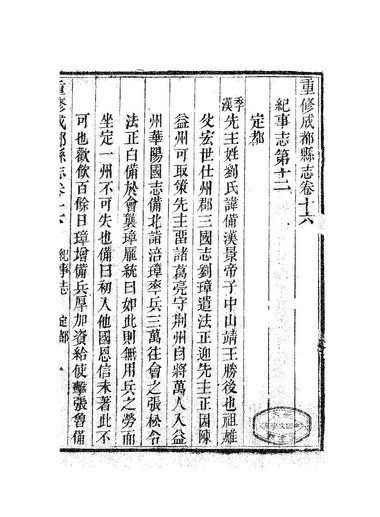 重修成都縣志卷十六
紀事志第十二
定都
季漢先主姓劉氏諱備漢景帝子中山靖王勝後也祖雄
父宏世仕州郡三國志劉璋遣法正迎先主正因陳
益州可取策先主畱諸葛亮守荆州自將萬人入益
州華陽國志備北詣涪璋率兵三萬往會之張松令
法正白備於會襲璋龐統曰如此則無用兵之勞而
坐定一州不可失也備曰初入他國恩信未著此不
可也歡飲百餘日璋增備兵厚加資給使擊張魯備
重修成都縣志卷十六
紀事志
定都
一